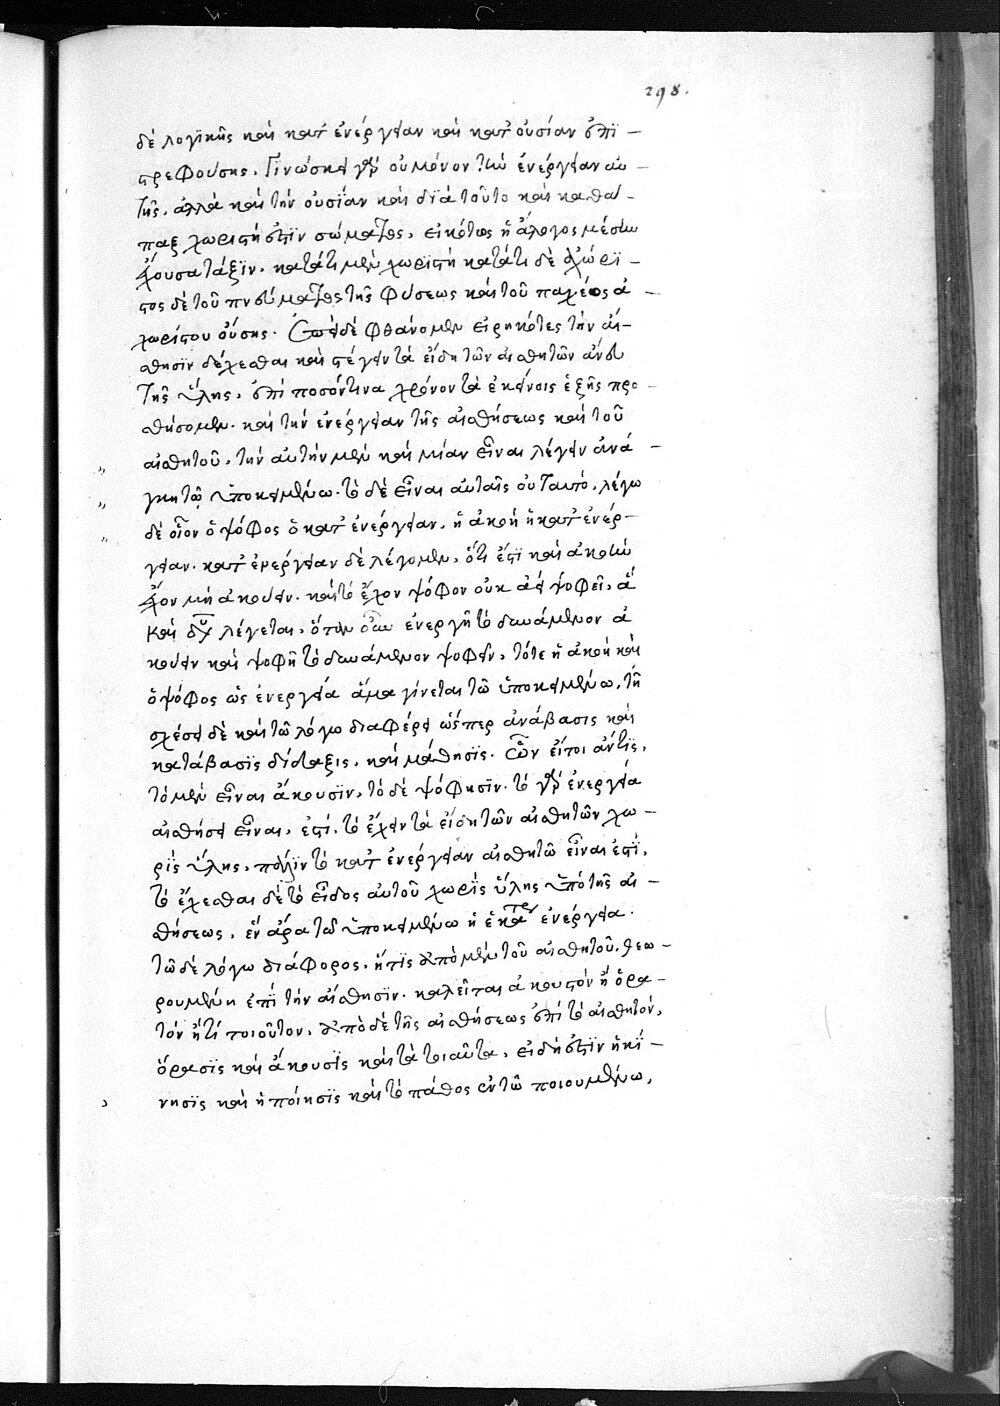 298.
δὲ λογϊκῆς καὶ κατ' ἐνέργειαν καὶ κατ' οὐσίαν ἐπϊ –
στρεφούσης. Γινώσκει γὰρ οὐ μόνον τὴν ἐνέργειαν αὐ –
τῆς, ἀλλὰ καὶ τὴν οὐσΐαν καὶ δϊὰ τοῦτο καὶ καθά –
παξ χωριστή ἐστϊν σώματος, εἰκότως ἡ ἄλογος μέσην
ἔχουσα τάξϊν. κατά τι μὲν χωρϊστὴ κατά τι δὲ ἀχώρϊ –
στος δὲ τοῦ πνεύματος τῆς φύσεως καὶ τοῦ παχέος ἀ –
χωρίστου οὔσης. ἐπεὶ δὲ φθάνομεν εἰρηκότες τὴν αἴ –
σθησϊν δέχεσθαι καὶ στέγειν τὰ εἴδη τῶν αἰσθητῶν ἄνευ
τῆς ὕλης, ἐπὶ ποσόν τινα χρόνον τὰ ἐκείνοις ἑξῆς προ –
θήσομεν. καὶ τὴν ἐνέργειαν τῆς αἰσθήσεως καὶ τοῦ
αἰσθητοῦ, τὴν αὐτὴν μὲν καὶ μίαν εἶναι λέγειν ἀνά –
γκη τῷ ὑποκειμένω. τὸ δὲ εἶναι αὐταῖς οὐ ταυτό, λέγω
δὲ οἷον ὁ ψόφος ὁ κατ' ἐνέργειαν, ἡ ἀκοὴ ἡ κατ' ἐνέρ –
γειαν. κατ' ἐνέργειαν δὲ λέγομεν, ὅτι ἔστϊ καὶ ἀκοὴν
ἔχον μὴ ἀκούειν. καὶ τὸ ἔχον ψόφον οὐκ ἀεὶ ψοφεῖ, ἃ
καὶ λέγεται, ὅταν οὖν ἐνεργῆ τὸ δυνάμενον ἀ
κούειν καὶ ψοφῆ τὸ δυνάμενον ψοφεῖν, τότε ἡ ἀκοὴ καὶ
ὁ ψόφος ὡς ἐνεργεία ἅμα γίνεται τῶ ὑποκειμένω, τῆ
σχέσει δὲ καὶ τῶ λόγω διαφέρει ὥσπερ ἀνάβασις καὶ
κατάβασϊς δίδαξις, καὶ μάθησϊς. ὧν εἴποι ἄν τϊς,
τὸ μὲν εἶναι ἄκουσϊν, τὸ δὲ ψόφησϊν. τὸ γὰρ ἐνεργεία
αἰσθήσει εἶναι, ἐστί. τὸ ἔχειν τὰ εἴδη τῶν αἰσθητῶν χω –
ρΐς ὕλης, πάλϊν τὸ κατ' ἐνέργειαν αἰσθητῶ εἶναι ἐστΐ,
τὸ ἔχεσθαι δὲ τὸ εἶδος αὐτοῦ χωρΐς ὕλης ὑπὸ τῆς αἰ –
σθήσεως, ἓν ἄρα τῶ ὑποκειμένω ἡ ἑκατέρα ἐνέργεια.
τῶ δὲ λόγω διάφορος, ἥτϊς ἀπὸ μὲν τοῦ αἰσθητοῦ, θεω –
ρουμένη ἐπΐ τὴν αἴσθησϊν. καλεῖται ἀκουστόν ἢ ὁρα –
τόν ἤ τι τοιοῦτον, ἀπὸ δὲ τῆς αἰσθήσεως ἐπί τὸ αἰσθητόν,
ὅρασϊς καὶ ἄκουσϊς καὶ τὰ τοιαῦτα, εἰ δή ἐστϊν ἡ κΐ –
νησϊς καὶ ἡ ποίησϊς καὶ τὸ πάθος ἐν τῶ ποιουμένω,